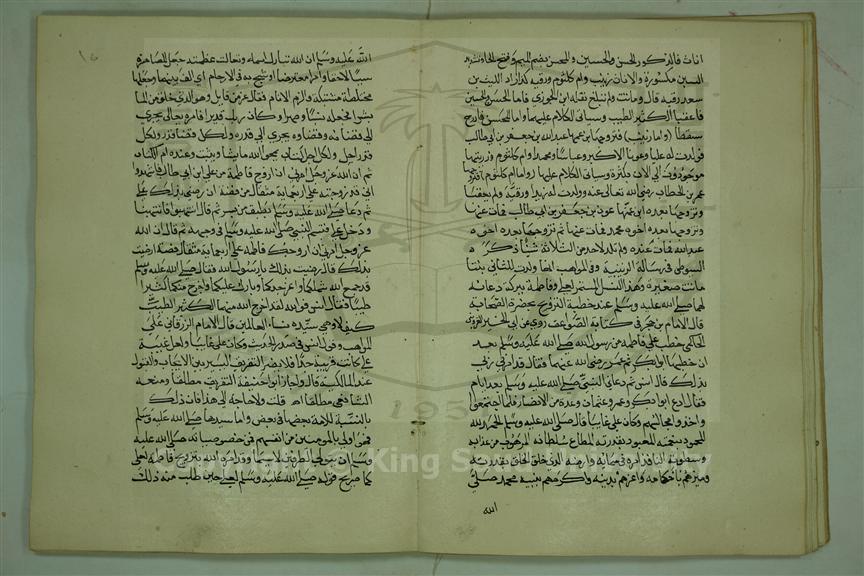 اناث فالذكور الحسن والحسين والمحسن بضم الميم وفتح الحاء وتشديد
السين مكسورة والاناث زينب وام كلثوم ورقيه كذا زاد الليث بن
سعد رقيه قال وماتت ولم تبلغ نقله ابن الجوزي فاما الحسن والحسين
فاعقبا الكثير الطيب وسياتي الكلام عليهما واما المحسن فادرج
سقطا واما زينب فتزوجها ابن عمها عبد الله بن جعفر بن ابي طالب
فولدت له عليا وعونا الاكبر وعباسا ومحمدا وام كلثوم وذريتها
موجودون الي الان بكثرة وسياتي الكلام عليها واما ام كلثوم فتزوجها
عمر بن الخطاب رضي الله تعالى عنه وولدت له زيدا ورقية ولم يعقبا
وتزوجها بعده ابن عمها عون بن جعفر بن ابي طالب فمات عنها
وتزوجها بعده اخوه محمد فمات عنها ثم تزوجها بعده اخوه
عبد الله فماتت عنده ولم تلد لاحد من الثلاثة شيأ ذكره
السيوطي في رسالة الزينبية وفي المواهب انها ولدت للثاني بنتا
ماتت صغيرة وهذا النسل المستمر لعلي وفاطمة ببركة دعائه
لهما صلى الله عليه وسلم عند خطبة التزويج بحضرة الصحابة
قال الامام بن حجر في كتابه الصواعق روي عن ابي الخير القزويني
الحاكمي خطب علي فاطمة من رسول الله صلى الله عليه وسلم بعد
ان خطبها ابو بكر ثم عمر رضي الله عنهما فقال قد امرني ربي
بذلك قال انس ثم دعاني النبي صلى الله عليه وسلم بعد ايام
فقال ادع ابو بكر وعمر وعثمان وعدة من الانصار فلما اجتمعوا
واخذوا مجالسهم وكان علي غائبا قال صلى الله عليه وسلم الحمد لله
المحمود بنعمته المعبود بقدرته المطاع سلطانه المرهوب من عذابه
وسطوته النافذ امره في سمائه وارضه الذي خلق الخلق بقدرته
وميزهم باحكامه واعزهم بدينه واكرمهم بنبيه محمد صلي
الله
الله عليه وسلم ان الله تبارك اسمه وتعالت عظمته جعل المصاهرة
سببا لاحقا وامرا مفترضا اوشج به في الارحام اي الف بينها وجعلها
مختلطة مشتبكة والزم الانام فقال عز من قائل وهو الذي خلق من الما
بشرا فجعله نسبا وصهرا وكان ربك قديرا فامره تعالى يجري
الى قضائه وقضاؤه يجري الى قدره ولكل قضا قدر ولكل
قدر اجل ولكل اجل كتاب يمحو الله ما يشا ويثبت وعنده ام الكتاب
ثم ان الله عز وجل امرني ان ازوج فاطمة من علي بن ابي طالب فاشهدوا
اني قد زوجته على اربعماية مثقال من فضة ان رضي بذلك علي
ثم دعا صلى الله عليه وسلم بطبق من بسر ثم قال انتهبوا فانتهبنا
ودخل علي فتبسم النبي صلى الله عليه وسلم في وجهه ثم قال ان الله
عز وجل امرني ان ازوجك فاطمة على اربعماية مثقال فضة ارضيت
بذلك قال رضيت بذلك يا رسول الله فقال صلى الله عليه وسلم
قد جمع الله شملكما واعز جدكما وبارك عليكما واخرج منكما كثيرا
طيبا فقال انس فوالله لقد اخرج الله منهما الكثير الطيب
كيف لا وهي سيدة نساء العالمين قال الامام الزرقاني على
المواهب وقول انس في صدر الحديث وكان علي غايبا ولعل غيبة
علي كانت قريبة جدا فلا يضر التفريق اليسير بين الايجاب والقبول
عند المالكية قال واجاز ابو حنيفة التفريق مطلقا ومنعه
الشافعي مطلقا اه قلت ولا حاجة لي هذا فان ذلك
بالنسبة للامة بعضها في بعض واما سيدها صلى الله عليه وسلم
فهو اولى بالمؤمنين من انفسهم فمن خصوصياته صلى الله عليه
وسلم ان يتولي الطرفين لاسيما وقد امره الله بتزويج فاطمة لعلي
كما صرح قوله صلى الله عليه وسلم لعلي حين طلب منه ذلك
Copyright © King Saud University
195